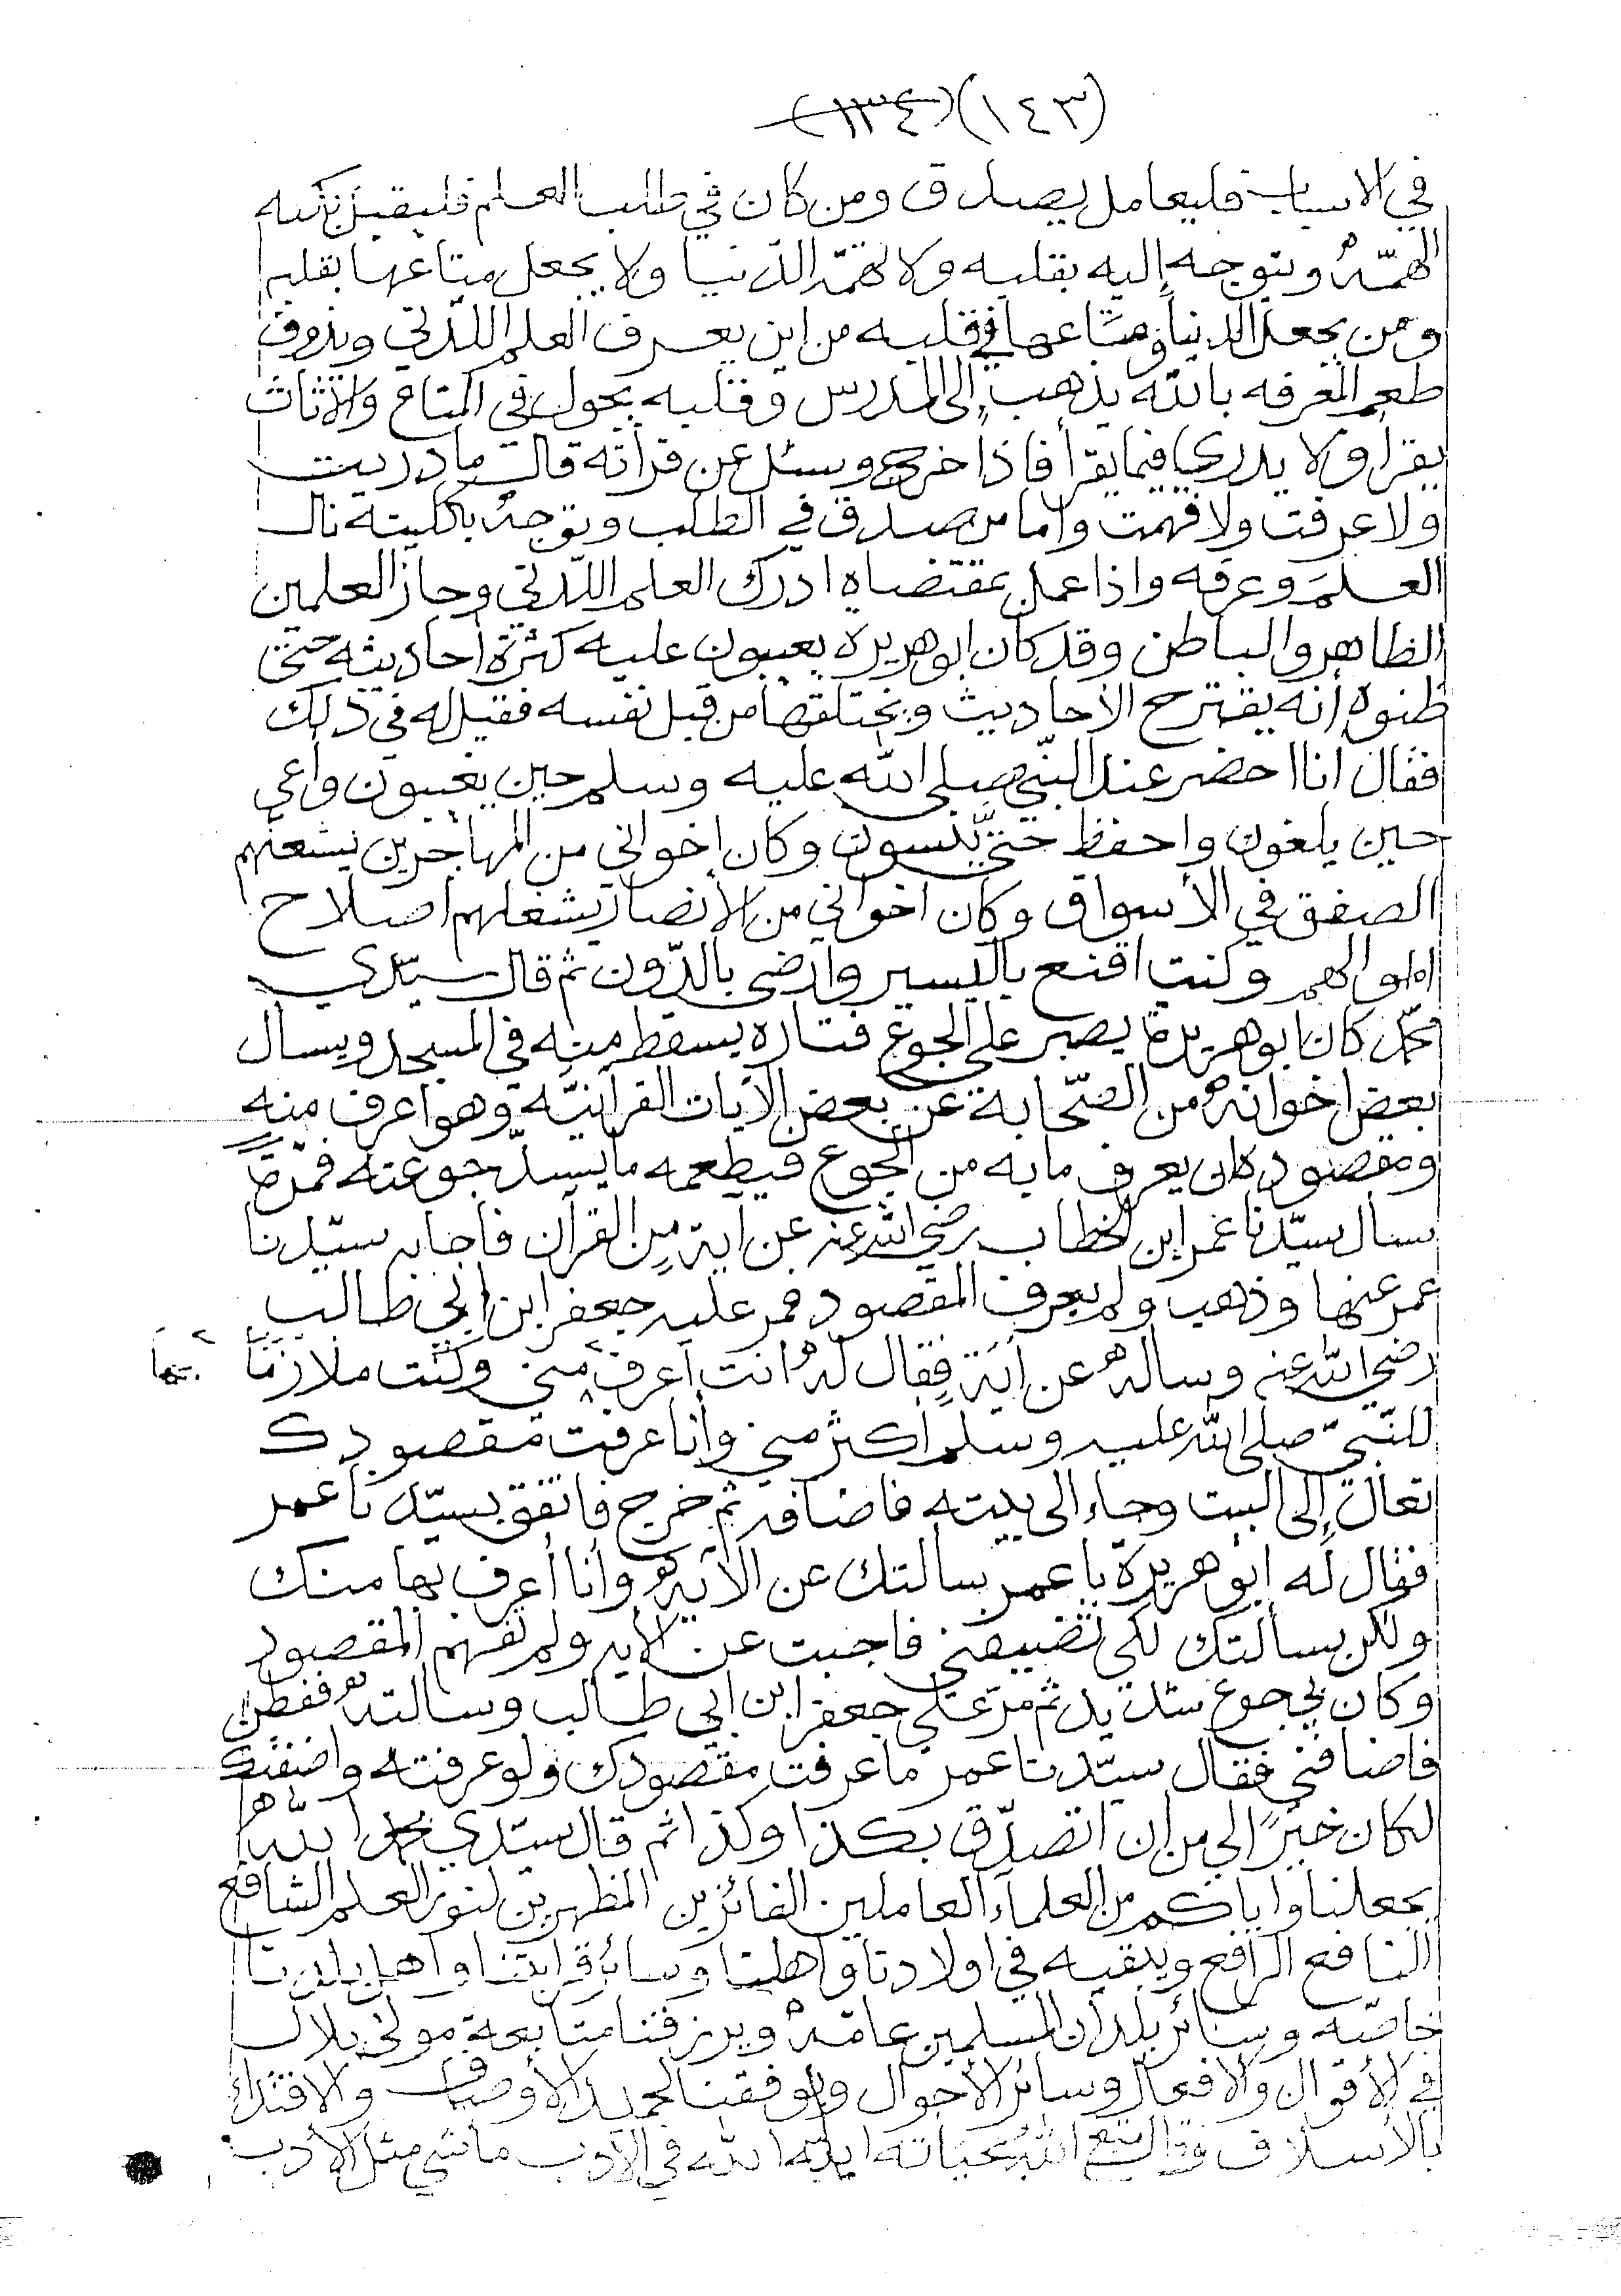 (١٤٣) (١٣٤)
في الاسباب فليعامل بصدق ومن كان في طلب العلم فليقبل بكنه
الهمّة ويتوجه إليه بقلبه ولا تهمّه الدّنيا ولا يجعل متاعها بقلبه
ومن يجعل الدنيا ومتاعها في قلبه من اين يعرف العلم اللّدني ويذوق
طعم المعرفه بالله يذهب إلى المدرس وقلبه يجول في المتاع والأثاث
يقرأ ولا يدري فيما يقرأ فاذا خرج وسئل عن قرأته قال ما دريت
ولا عرفت ولا فهمت واما من صدق في الطلب وتوجه بالكليته نال
العلمَ وعرفه واذا عمل بمقتضاه ادرك العلم اللّدني وحاز العلمين
الظاهر والباطن وقد كان ابو هريره يعيبون عليه كثرة أحاديثه حتى
ظنوه أنه يقترح الأحاديث ويختلقها من قبل نفسه فقيل له في ذلك
فقال انا احضر عند النبّي صلى الله عليه وسلم حين يغيبون وأعي
حين يلغون واحفظ حتى ينسون وكان إخواني من المهاجرين يشغلهم
الصفق في الأسواق وكان اخواني من الأنصار يشغلهم اصلاح
اموالهم وكنت اقنع باليسير وارضى بالدّون ثم قال سيّدي
محمّد كان ابو هريرة يصبر على الجوع فتاره يسقط منه في المسجد ويسال
بعض اخوانه من الصّحابة عن بعض الآيات القرآنيّه وهو اعرف منه
ومقصوده ان يعرف ما به من الجوع فيطعمه ما يسدّ جوعته فمرّة
سال سيّدنا عمر ابن الخطاب رضي الله عنه عن اية مِن القرآن فاجابه سيّدنا
عمر عنها وذهب ولم يعرف المقصود فمر عليه جعفر ابن ابي طالب
رضي الله عنه وساله عن أيَة فقال له انت أعرف مني وكنت ملازمًا
بها
للنبّي صلى الله عليه وسلم اكثر مني وأنا عرفت مقصودك
تعال إلى البيت وجاء الى بيته فاضافه ثم خرج فاتفق بسيّدنا عمر
فقال له ابو هريرة يا عمر سالتك عن الآيه وأنا أعرف بها منك
ولكن سالتك لكي تضيفني فاجبت عن الايه ولم تفهم المقصود
وكان بي جوع شديد ثم مرّ عليّ جعفر ابن ابي طالب وسالته ففطن
فاضافني فقال سيّدنا عمر ما عرفت مقصودك ولو عرفته واضفتك
لكان خيرًا لي من ان اتصدّق بكذا وكذا ثم قال سيّدي محمد الله
يجعلنا واياكم من العلماءَ العاملين الفائزين المظهرين لنور العلم الشافع
النافع الرافع ويبقيه في اولادنا واهلنا وسائر قرابتنا واهل بلدنا
خاصّه وسائر بلدان المسلمين عامّة ويرزقنا متابعة مولى بلال
في الأقوال والافعال وسائر الأحوال ويوفقنا لحميد الأوصاف والاقتداء
بالأسلاف وقال متع الله بحياته ايّده الله في الادب ما شي مثل الأدب